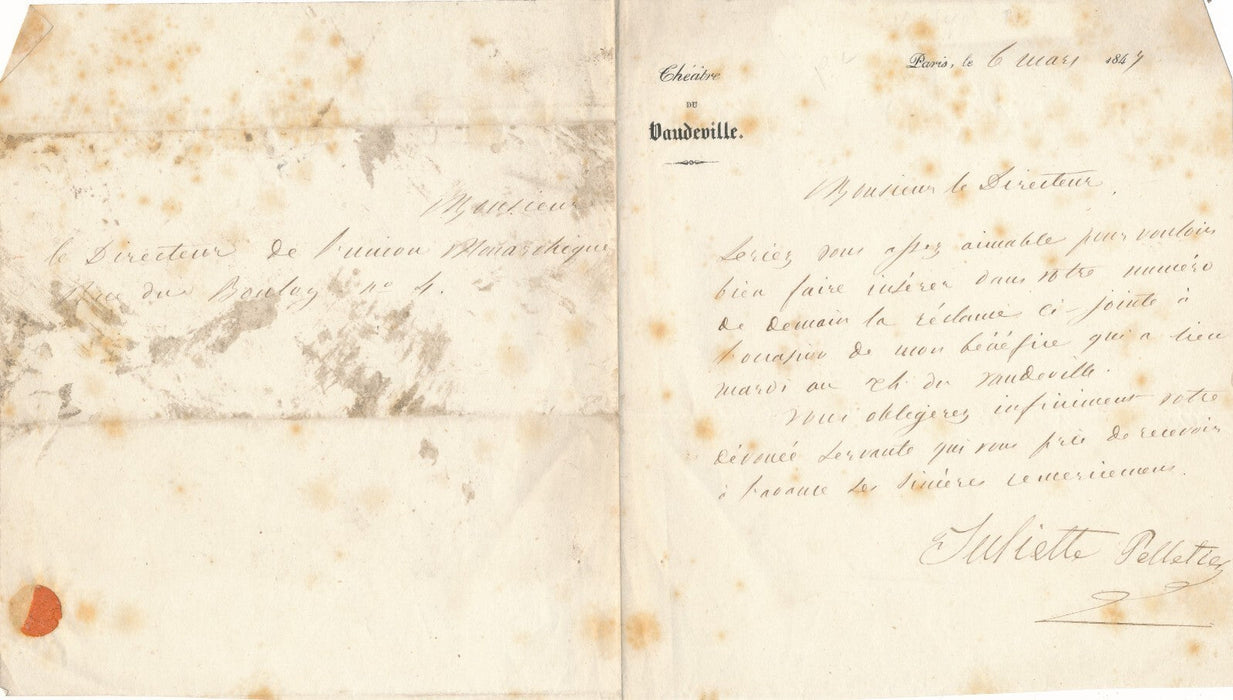 Monsieur
le Directeur de l'union Monarchique
Rue du Bouloy nº 4.
Paris, le 6 mars 1847
Théâtre
DU
Vaudeville.
Monsieur le Directeur,
Seriez vous assez aimable pour vouloir
bien faire insérer dans votre numéro
de demain la réclame ci-jointe à
l'occasion de mon bénéfice qui a lieu
mardi au th. du Vaudeville.
Vous obligerez infiniment votre
dévouée servante qui vous prie de recevoir
à l'avance ses sincères remerciemens.
Juliette Pelletier